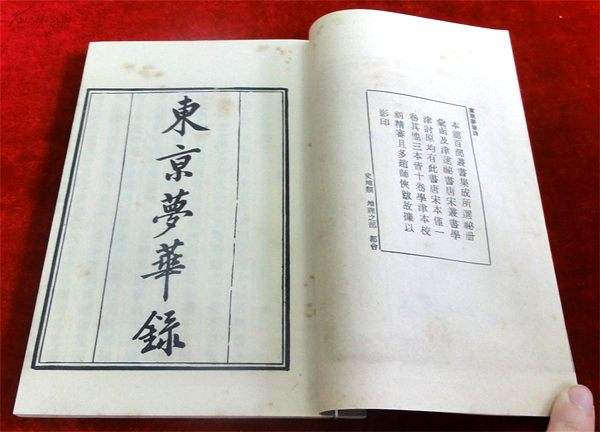 東京夢華錄
本館百部叢書集成所選祕冊
彙函及津逮祕書唐宋叢書學
津討原均有此書唐宋本僅一
卷其他三本皆十卷學津本校
勘精審且多趙師俠跋故據以
影印
史地類 地理之部 都會
東京夢華錄